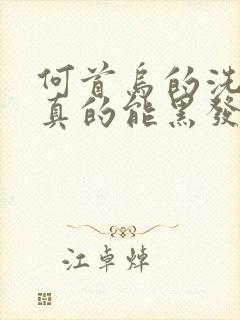 何首烏的洗
真的能黑發
江卓焯